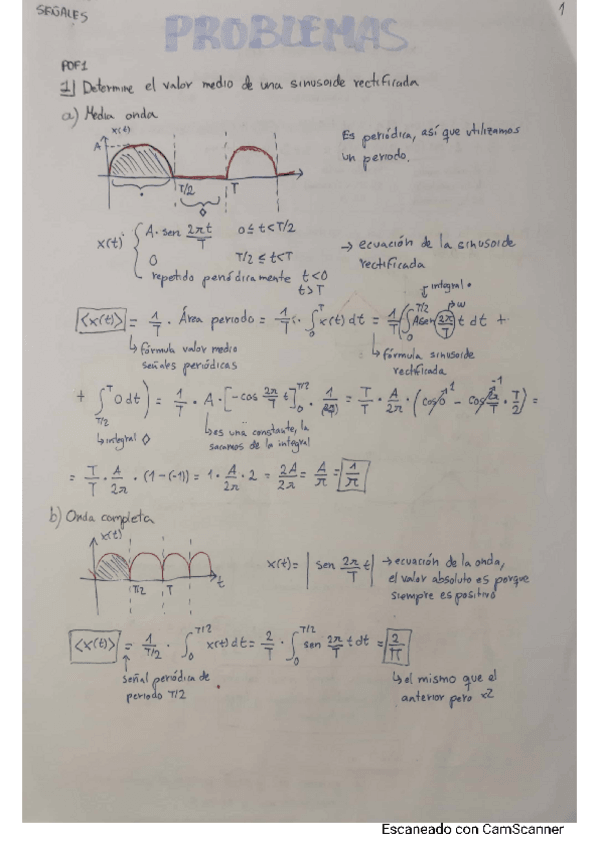 SEÑALES
1
PROBLEMAS
PDF1
1) Determine el valor medio de una sinusoide rectificada
a) Media onda
x(t)
A
T/2
T
Es periódica, así que utilizamos
un periodo.
x(t) { A · sen 2πt/T 0 ≤ t < T/2
0 T/2 ≤ t < T
repetido periódicamente t<0
t>T
→ ecuación de la sinusoide
rectificada
<x(t)> = 1/T · Área periodo = 1/T · ∫₀ᵀ x(t) dt = 1/T (∫₀^T/2 A sen (2π/T) t dt +
integral •
ω
↳ fórmula valor medio
señales periódicas
↳ fórmula sinusoide
rectificada
+ ∫_T/2^T 0 dt) = 1/T · A · [-cos 2π/T t]₀^T/2 · 1/(2π/T) = T/T · A/2π · (cos 0 - cos 2π/T · T/2) =
1
-1
↳ integral ◊
↳ es una constante, la
sacamos de la integral
= T/T · A/2π · (1-(-1)) = 1 · A/2π · 2 = 2A/2π = A/π = 1/π
b) Onda completa
x(t)
T/2
T
t
x(t) = | sen 2π/T t |
→ ecuación de la onda,
el valor absoluto es porque
siempre es positivo
<x(t)> = 1/T/2 · ∫₀^T/2 x(t) dt = 2/T · ∫₀^T/2 sen 2π/T t dt = 2/π
señal periódica de
periodo T/2
↳ el mismo que el
anterior pero x2
Escaneado con CamScanner